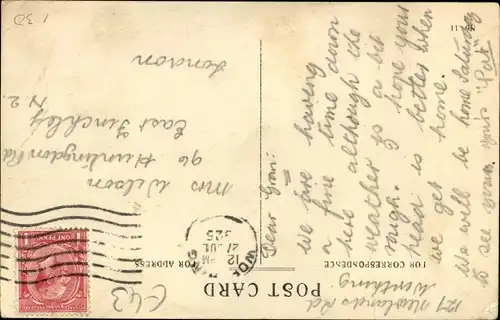 POST CARD
FOR CORRESPONDENCE
FOR ADDRESS
127 Newlands Rd
Worthing
Dear Gran:
We are having
a fine time down
here although the
weather is a bit
rough. I hope your
head is better when
we get home.
We will be home Saturday
to see you. Yours "Pat"
Mrs Wilson
96 Huntingdon Rd
East Finchley
N 2.
London
12 PM
21 JUL
325
ONE PENNY
C43
1 30